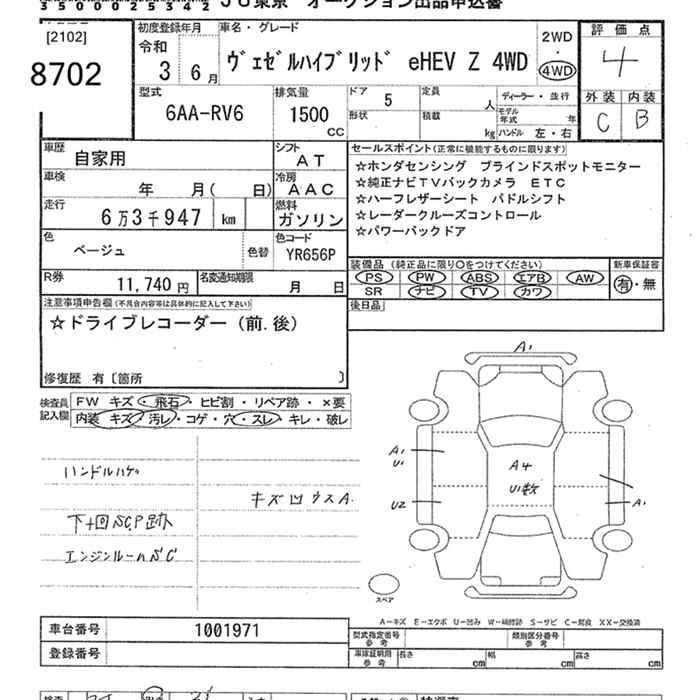 35000025342
JU東京 オークション出品申込書
[2102]
8702
初度登録年月
令和
3 6月
車名・グレード
ヴェゼルハイブリッド eHEV Z 4WD
2WD
・
4WD
評価点
4
外装 内装
C B
型式
6AA-RV6
排気量
1500
CC
ドア
5
形状
定員
人
積載
kg
ディーラー・並行
モデル年式
年
ハンドル 左・右
車歴
自家用
シフト
AT
車検
年 月( 日)
冷房
AAC
走行
6万3千947 km
燃料
ガソリン
色
ベージュ
色替
色コード
YR656P
R券
11,740 円
名変通知期限
月 日
セールスポイント(正常に機能するものに限ります)
☆ホンダセンシング ブラインドスポットモニター
☆純正ナビTVバックカメラ ETC
☆ハーフレザーシート パドルシフト
☆レーダークルーズコントロール
☆パワーバックドア
装備品(純正品に限り○をつけてください)
新車保証書
PS PW ABS エアB AW
SR ナビ TV カワ
有・無
後日品
注意事項申告欄(不具合内容等は具体的に記入して下さい)
☆ドライブレコーダー(前.後)
修復歴 有〔箇所 〕
検査員記入欄
FW キズ・飛石・ヒビ割・リペア跡・×要
内装 キズ・汚レ・コゲ・穴・スレ・キレ・破レ
ハンドルハゲ
キズ凹ウスA
エンジンルーム
A1
A1
U1
A4
U1数
U2
A1
スペア
A－キズ E－エクボ U－凹み W－補修跡 S－サビ C－腐食 XX－交換済
車台番号
1001971
登録番号
型式指定番号
参考
類別区分番号
参考
車庫証明用
参考
長さ
cm
幅
cm
高さ
cm